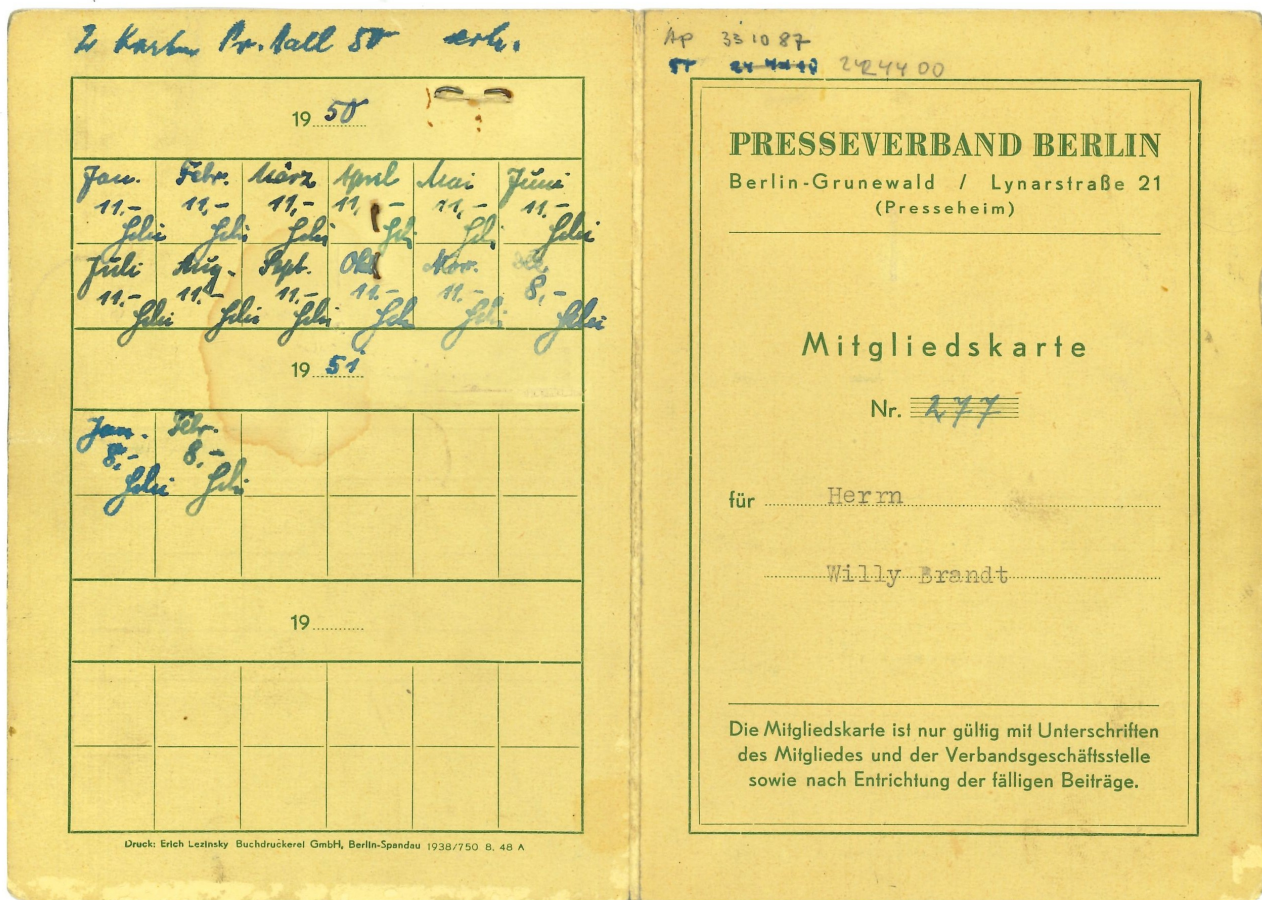 2 Karten Pr. Ball 50 erh.
19 50
Jan. Febr. März April Mai Juni
11,- 11,- 11,- 11,- 11,- 11,-
Juli Aug. Sept. Okt. Nov. Dez.
11,- 11,- 11,- 11,- 11,- 8,-
19 51
Jan. Febr.
8,- 8,-
19
Druck: Erich Lezinsky Buchdruckerei GmbH, Berlin-Spandau 1938/750 8. 48 A
Ap 33 10 87
24 44 00
PRESSEVERBAND BERLIN
Berlin-Grunewald / Lynarstraße 21
(Presseheim)
Mitgliedskarte
Nr. 277
für Herrn
Willy Brandt
Die Mitgliedskarte ist nur gültig mit Unterschriften
des Mitgliedes und der Verbandsgeschäftsstelle
sowie nach Entrichtung der fälligen Beiträge.